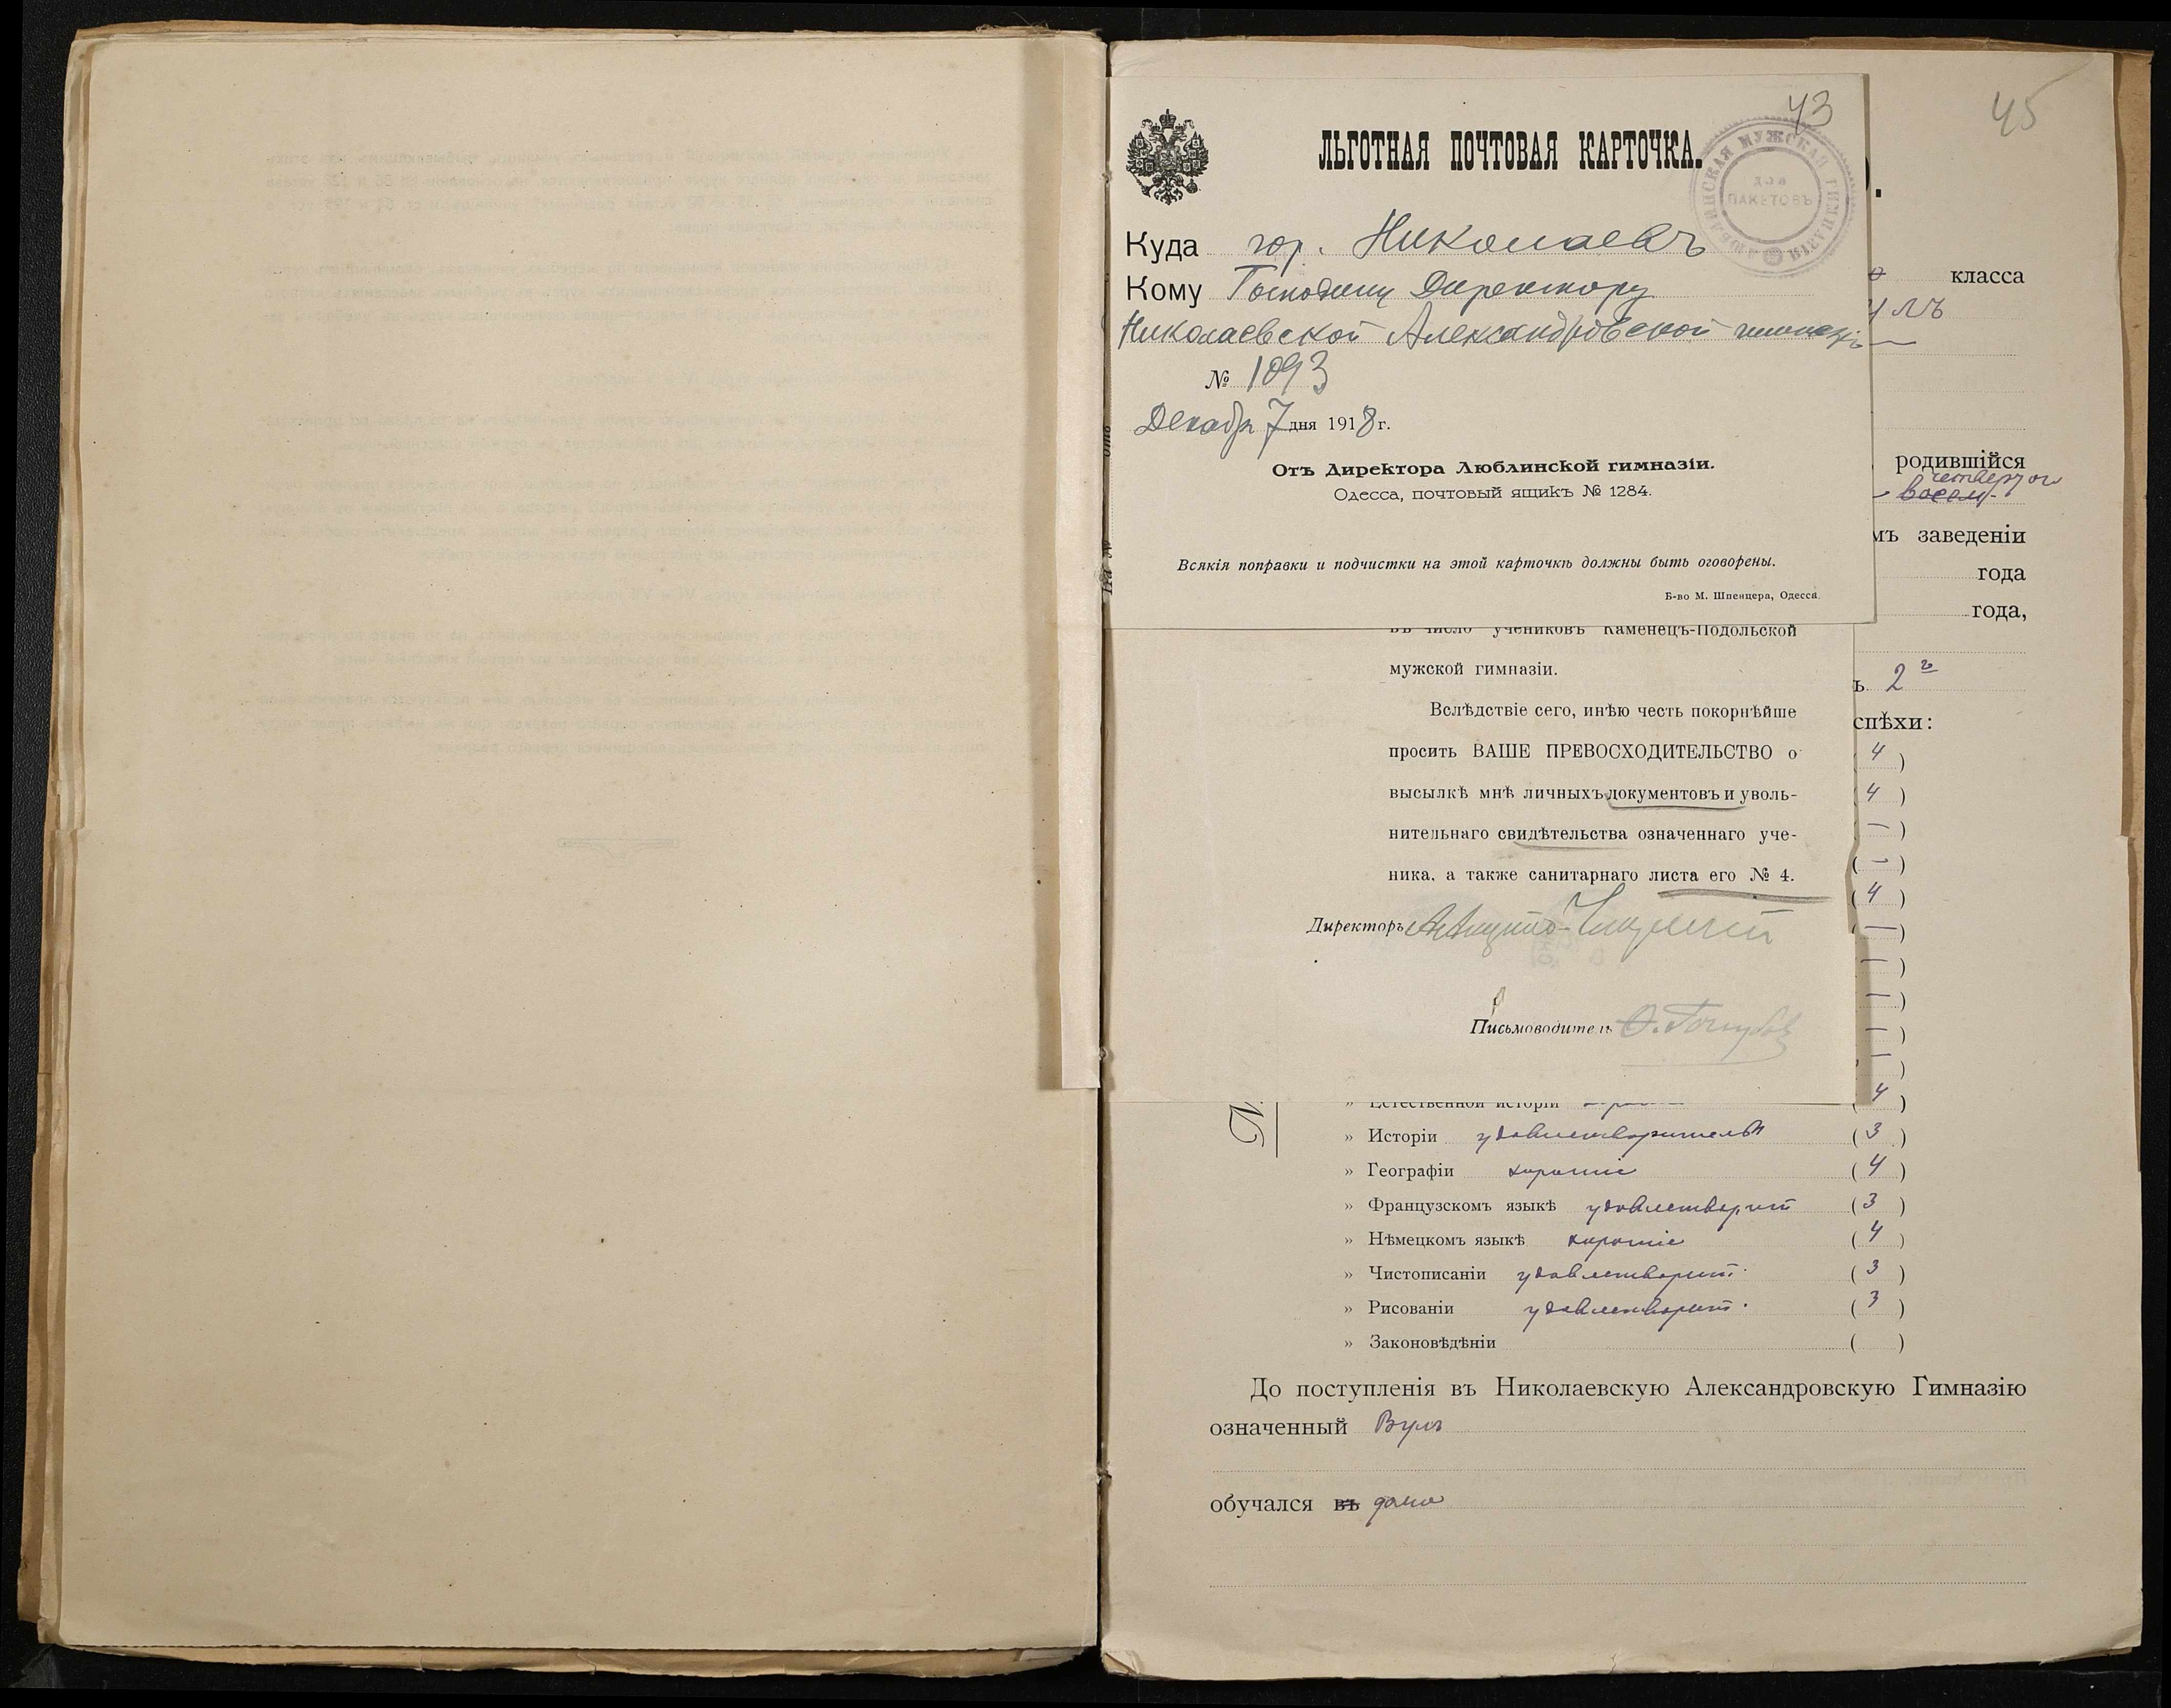 45
43
ЛЬГОТНАЯ ПОЧТОВАЯ КАРТОЧКА.
ЛЮБЛИНСКАЯ МУЖСКАЯ ГИМНАЗІЯ
для
ПАКЕТОВЪ
Куда гор. Николаевъ
Кому Господину Директору
Николаевской Александровской гимназіи
№ 1093
Декабря 7 дня 1918 г.
Отъ Директора Люблинской гимназіи.
Одесса, почтовый ящикъ № 1284.
Всякія поправки и подчистки на этой карточкѣ должны быть оговорены.
Б-во М. Шпенцера, Одесса.
класса
родившійся
четвертого
восем-
мъ заведеніи
года
года,
ъ 2г
спѣхи:
въ число учениковъ Каменецъ-Подольской
мужской гимназіи.
Вслѣдствіе сего, инѣю честь покорнѣйше
просить ВАШЕ ПРЕВОСХОДИТЕЛЬСТВО о
высылкѣ мнѣ личныхъ документовъ и уволь-
нительнаго свидѣтельства означеннаго уче-
ника, а также санитарнаго листа его № 4.
Директоръ
Письмоводитель
( 4 )
( 4 )
( — )
( — )
( 4 )
( — )
— )
— )
— )
— )
» Естественной исторіи ( 4 )
» Исторіи удовлетворительн ( 3 )
» Географіи хорошіе ( 4 )
» Французскомъ языкѣ удовлетворит ( 3 )
» Нѣмецкомъ языкѣ хорошіе ( 4 )
» Чистописаніи удовлетворит. ( 3 )
» Рисованіи удовлетворит. ( 3 )
» Законовѣдѣніи ( )
До поступленія въ Николаевскую Александровскую Гимназію
означенный Вулъ
обучался въ дома